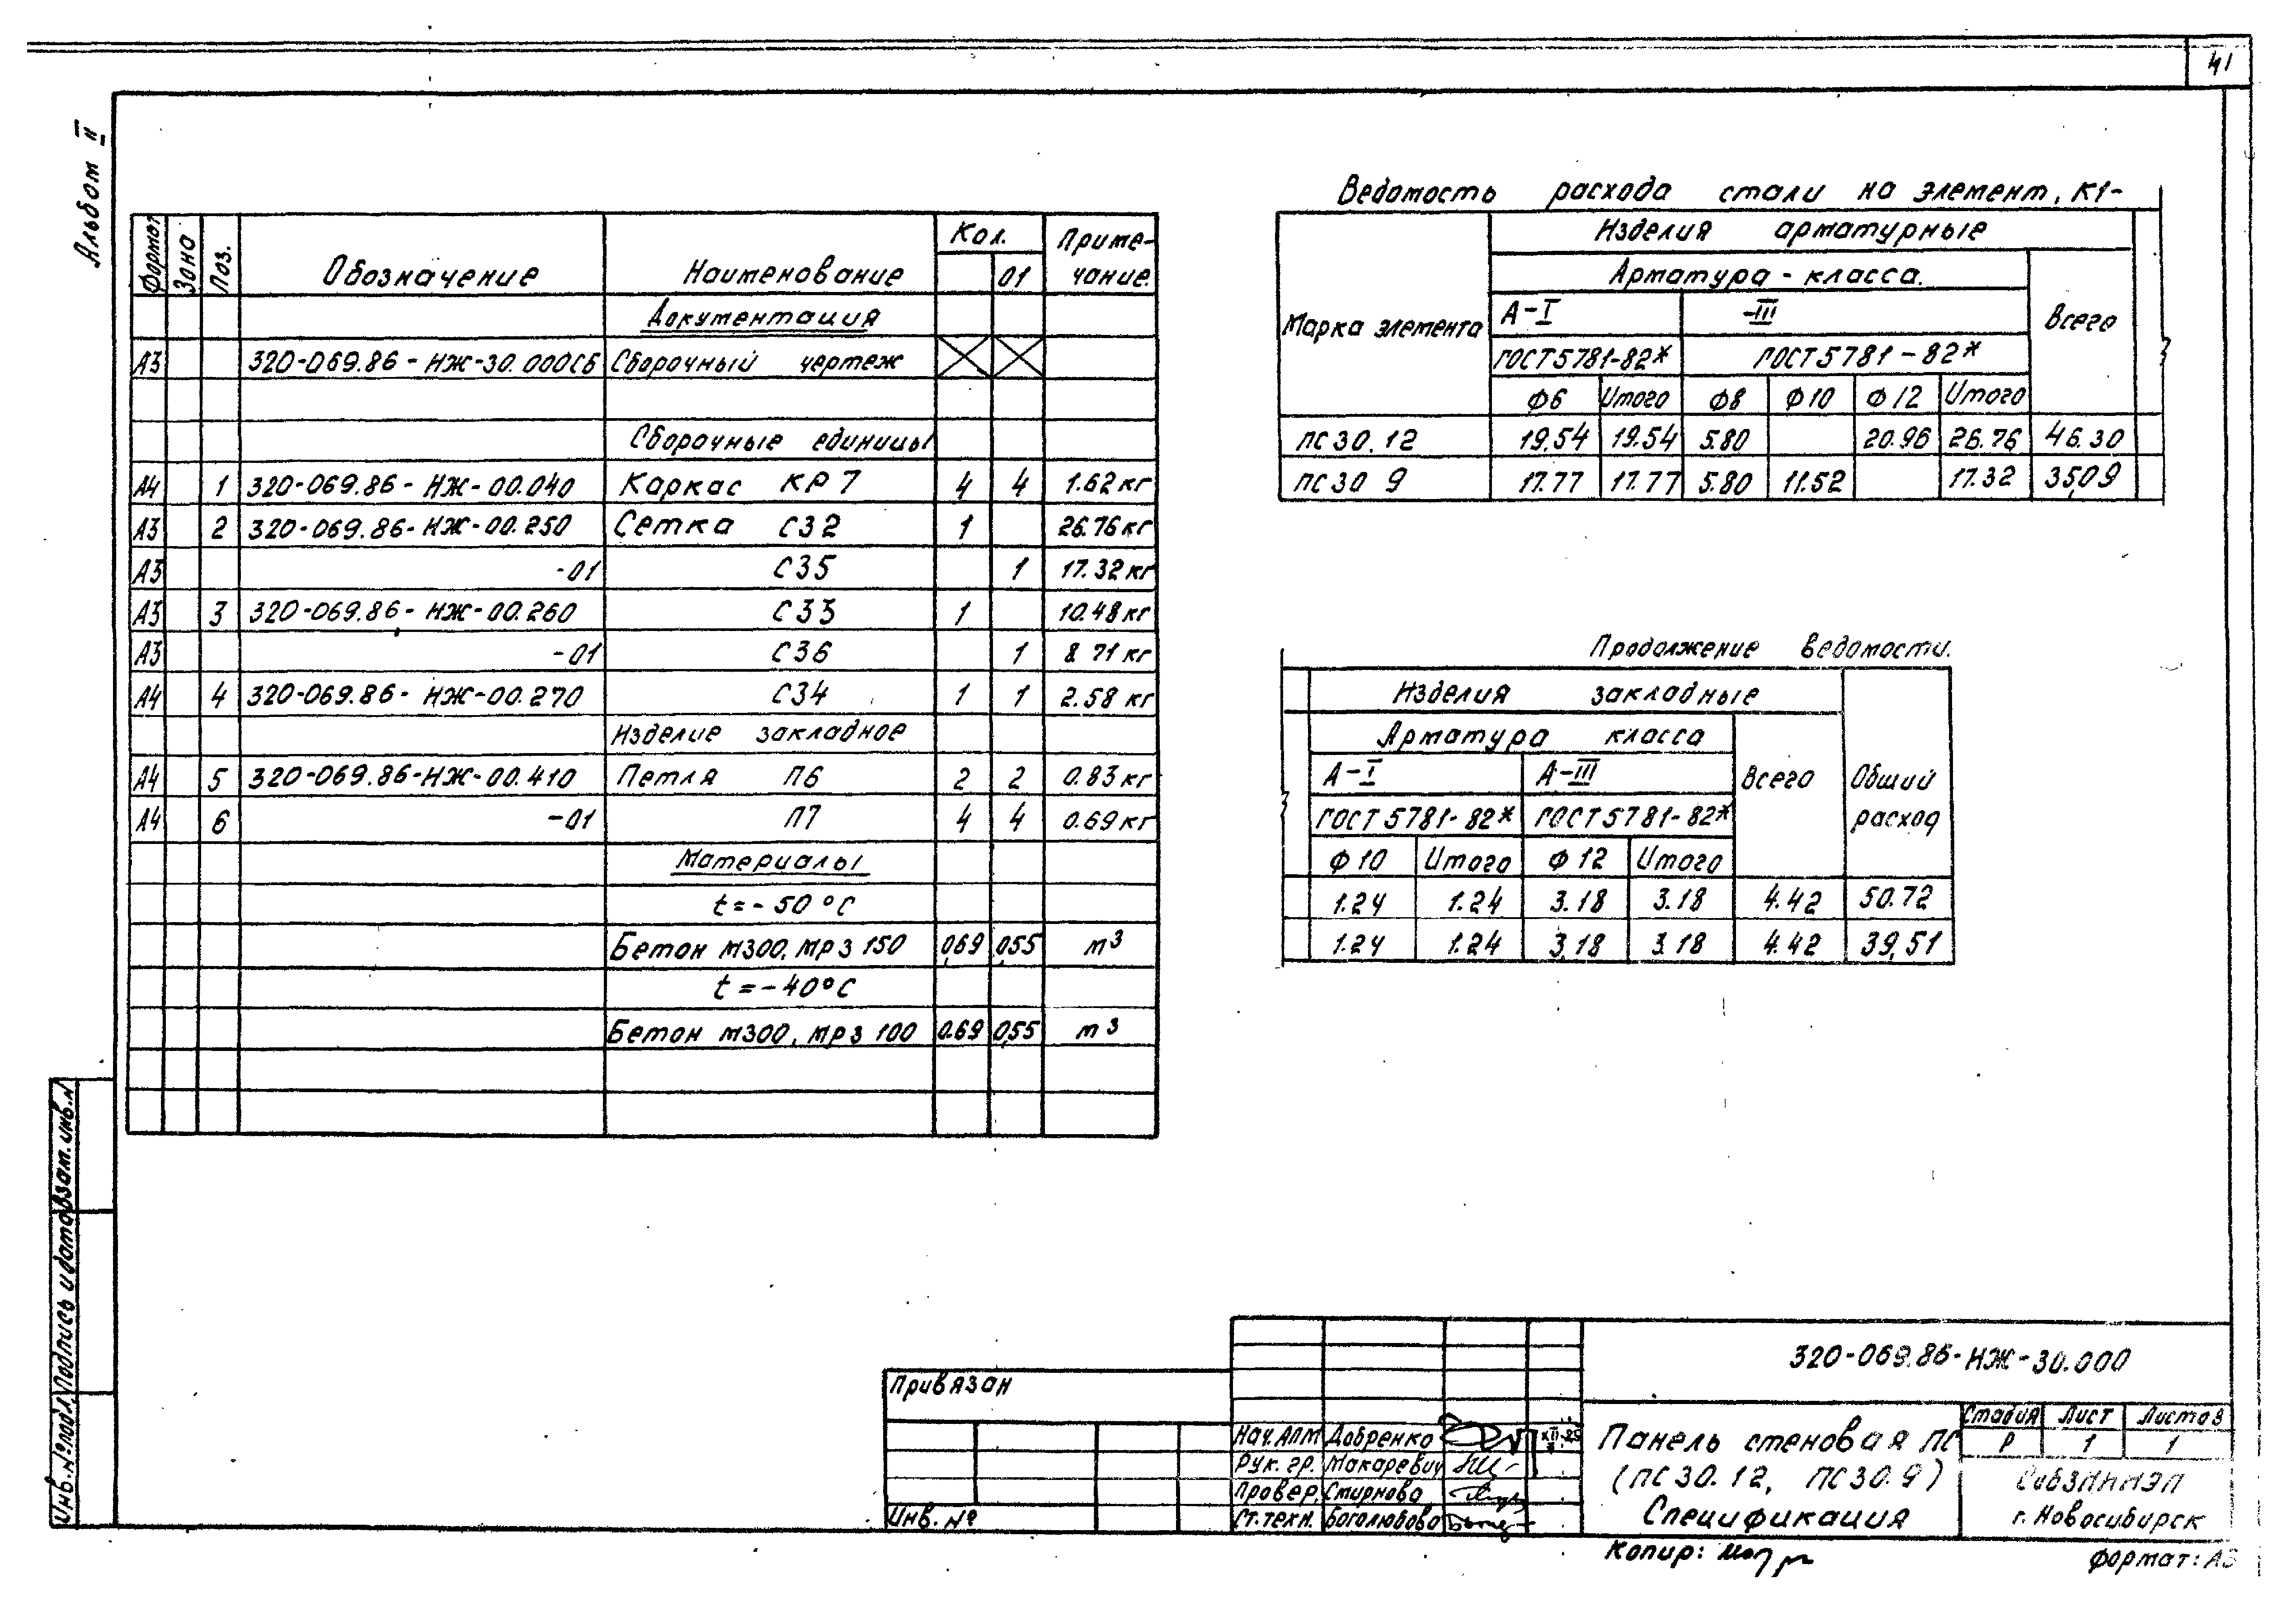 41
Альбом II
Формат Зона Поз. Обозначение Наименование Кол. Приме-
чание.
01
Документация
А3 320-069.86-НЖ-30.000СБ Сборочный чертеж
Сборочные единицы
А4 1 320-069.86-НЖ-00.040 Каркас КР7 4 4 1.62кг
А3 2 320-069.86-НЖ-00.250 Сетка С32 1 26.76кг
А3 -01 С35 1 17.32кг
А3 3 320-069.86-НЖ-00.260 С33 1 10.48кг
А3 -01 С36 1 8 71кг
А4 4 320-069.86-НЖ-00.270 С34 1 1 2.58кг
Изделие закладное
А4 5 320-069.86-НЖ-00.410 Петля П6 2 2 0.83кг
А4 6 -01 П7 4 4 0.69кг
Материалы
t=-50°С
Бетон м300, мрз 150 0,69 0,55 m³
t=-40°С
Бетон м300, мрз 100 0.69 0,55 m³
Ведомость расхода стали на элемент, К1-
Марка элемента Изделия арматурные
Арматура-класса.
А-I -III Всего
ГОСТ5781-82* ГОСТ5781-82*
Ф6 Итого Ф8 Ф10 Ф12 Итого
ПС30.12 19.54 19.54 5.80 20.96 26.76 46.30
ПС30 9 17.77 17.77 5.80 11.52 17.32 35,09
Продолжение ведомости.
Изделия закладные
Арматура класса
А-I А-III Всего Общий
расход
ГОСТ5781-82* ГОСТ5781-82*
Ф10 Итого Ф12 Итого
1.24 1.24 3.18 3.18 4.42 50.72
1.24 1.24 3,18 3.18 4.42 39,51
Инв.№подл. Подпись и дата Взам.инв.№
Привязан
Инв.№
Нач.АПМ Добренко
Рук.гр. Макаревич
Провер. Смирнова
Ст.техн. Боголюбова
320-069.86-НЖ-30.000
Панель стеновая ПС
(ПС30.12, ПС30.9)
Спецификация
Стадия Лист Листов
Р 1 1
СибЗНИИЭП
г.Новосибирск
Копир:
Формат: А3